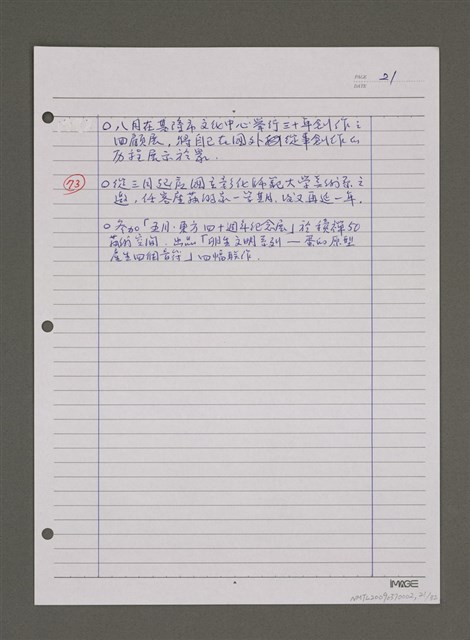 PAGE 21
DATE
○八月在基隆市文化中心舉行三十年創作之
回顧展,將自己在國外從事創作的
历程展示於眾.
73 ○從三月起應國立彰化師範大學美術系之
邀,任客座藝術家一學期,後又再延一年.
○參加「五月·東方四十週年紀念展」於積禪50
藝術空間.出品「明生文明系列—
產生四個音符」四幅聯作.
IMAGE
NMTL20090370002, 21/22